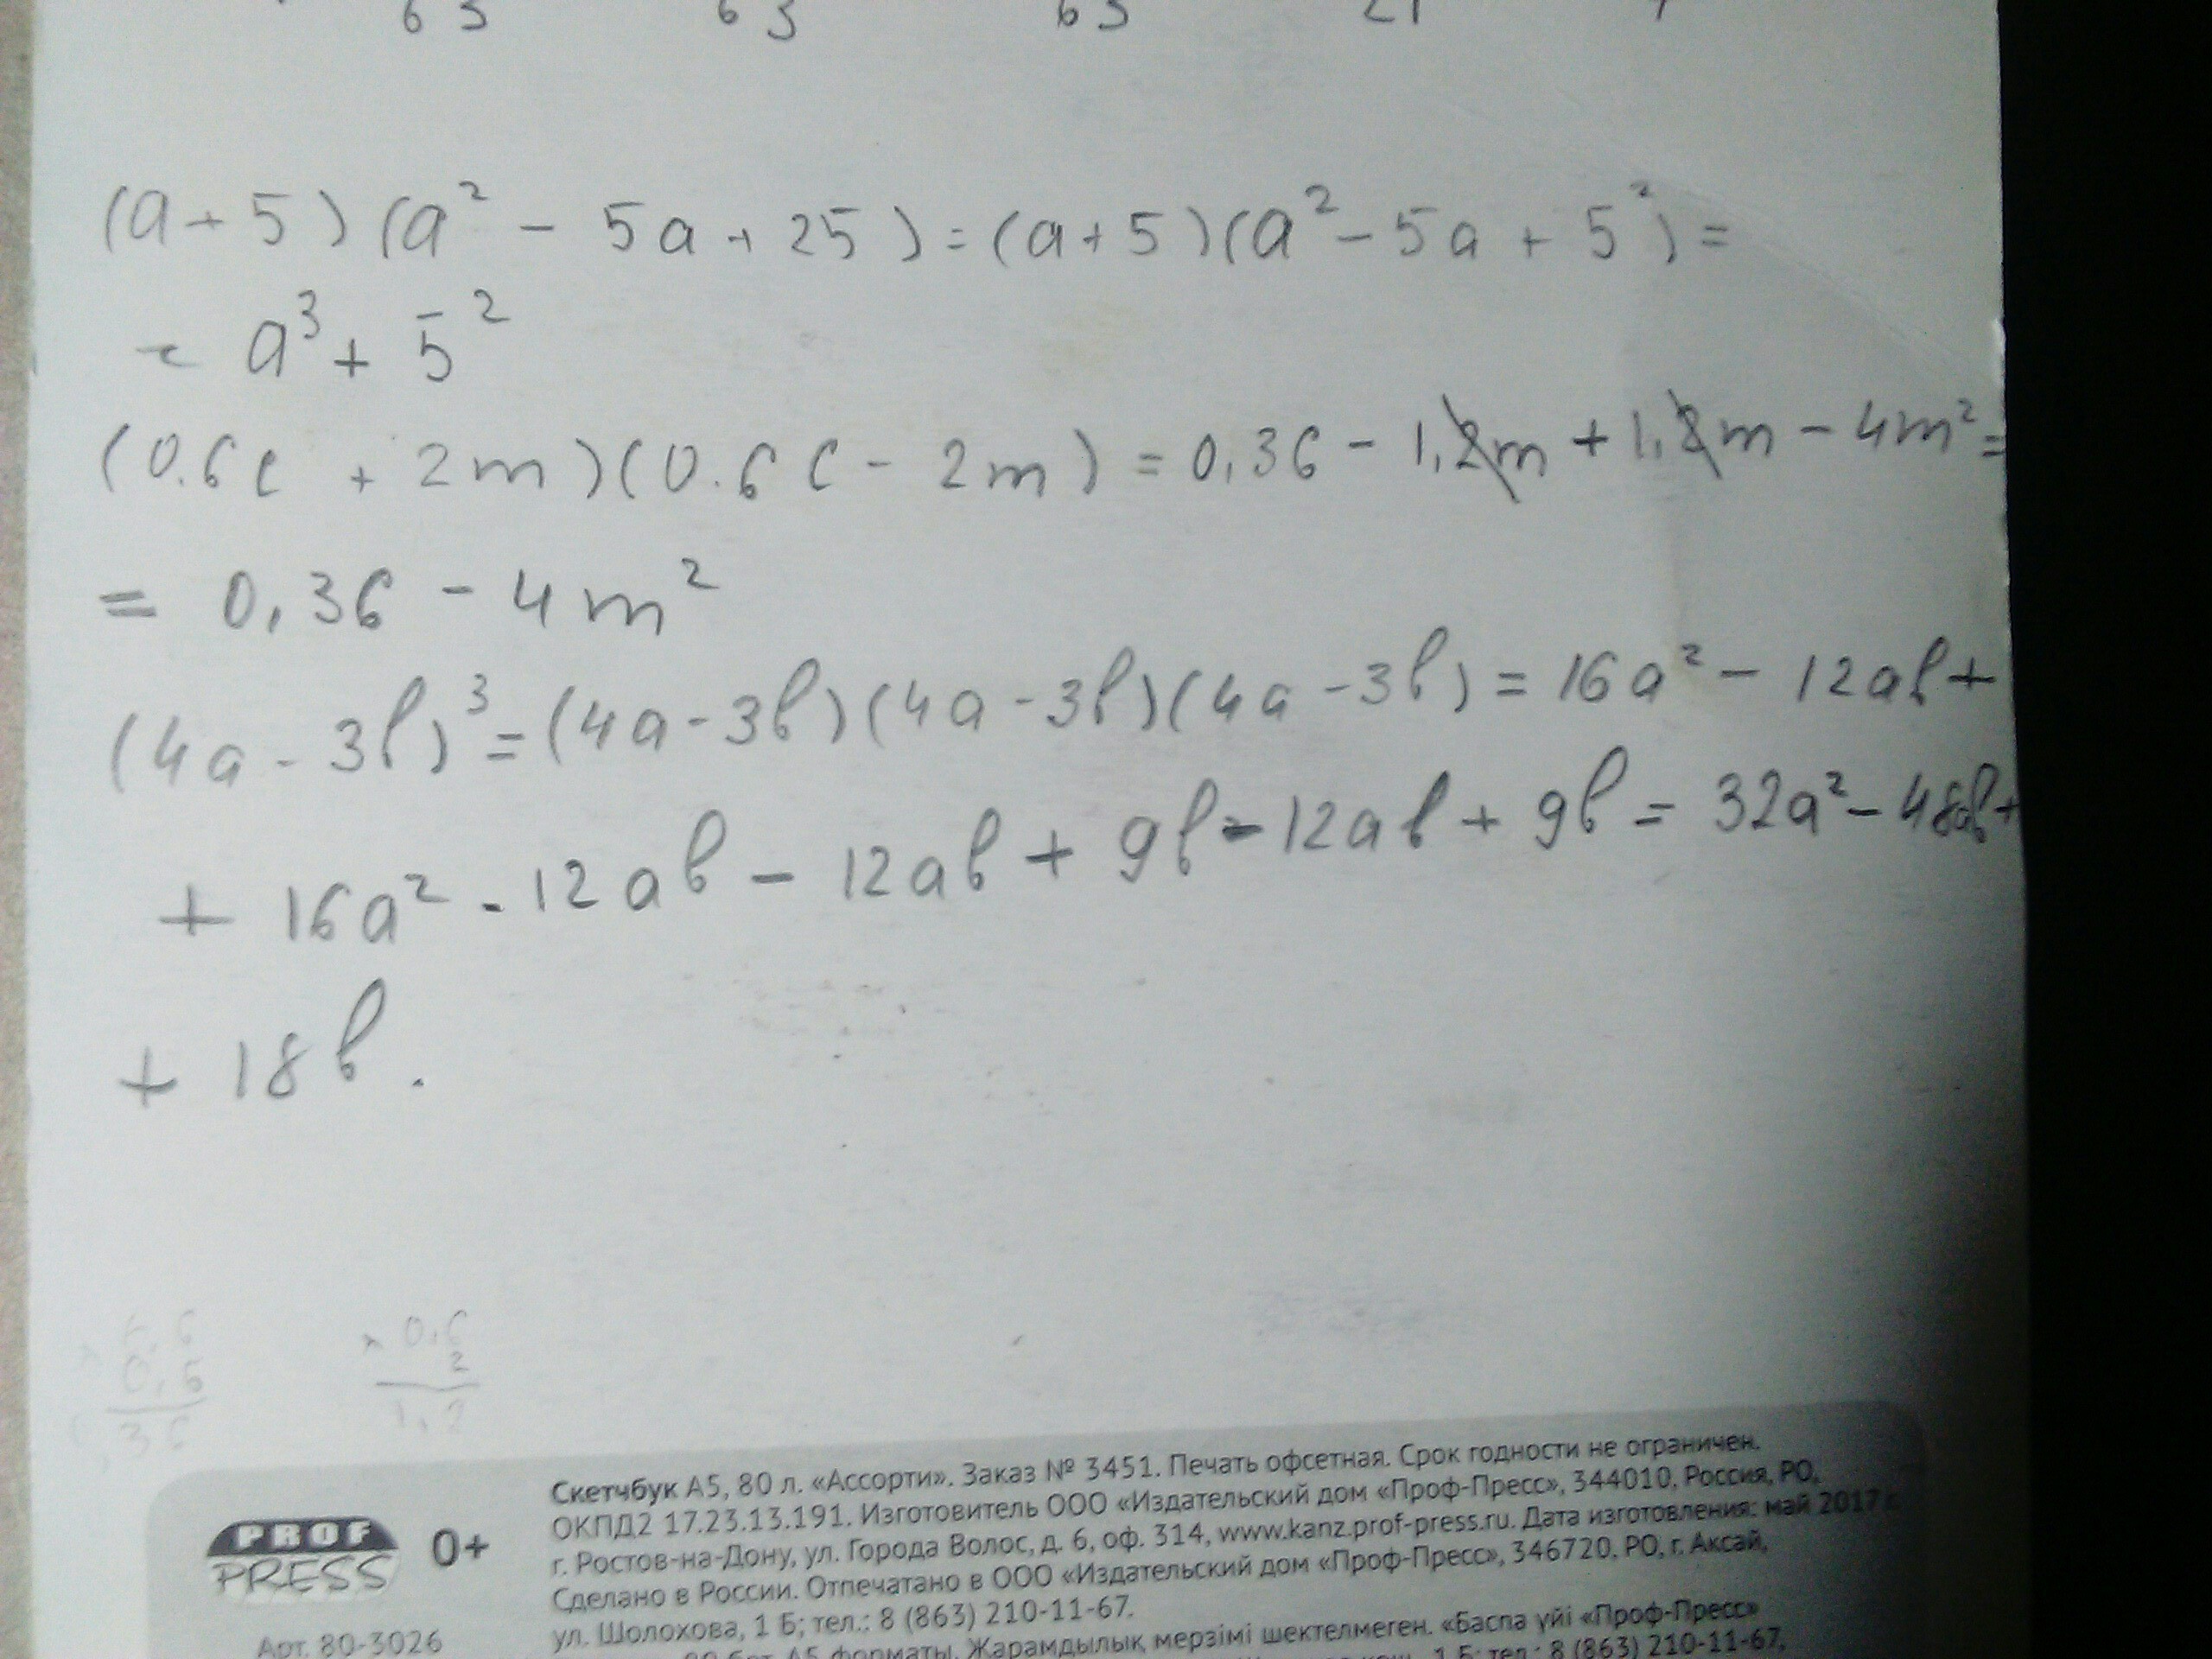 (a + 5)(a² - 5a + 25) = (a + 5)(a² - 5a + 5²) =
= a³ + 5²
(0.6c + 2m)(0.6c - 2m) = 0,36 - 1,2m + 1,2m - 4m² =
= 0,36 - 4m²
(4a - 3b)³ = (4a - 3b)(4a - 3b)(4a - 3b) = 16a² - 12ab +
+ 16a² - 12ab - 12ab + 9b - 12ab + 9b = 32a² - 48ab +
+ 18b.
× 0,6
2
1,2
PROF PRESS
0+
Арт. 80-3026
Скетчбук А5, 80 л. «Ассорти». Заказ № 3451. Печать офсетная. Срок годности не ограничен.
ОКПД2 17.23.13.191. Изготовитель ООО «Издательский дом «Проф-Пресс», 344010, Россия, РО,
г. Ростов-на-Дону, ул. Города Волос, д. 6, оф. 314, www.kanz.prof-press.ru. Дата изготовления: май 2017 г.
Сделано в России. Отпечатано в ООО «Издательский дом «Проф-Пресс», 346720, РО, г. Аксай,
ул. Шолохова, 1 Б; тел.: 8 (863) 210-11-67.
А5 форматы. Жарамдылық мерзімі шектелмеген. «Баспа үйі «Проф-Пресс»
1 Б; тел.: 8 (863) 210-11-67,